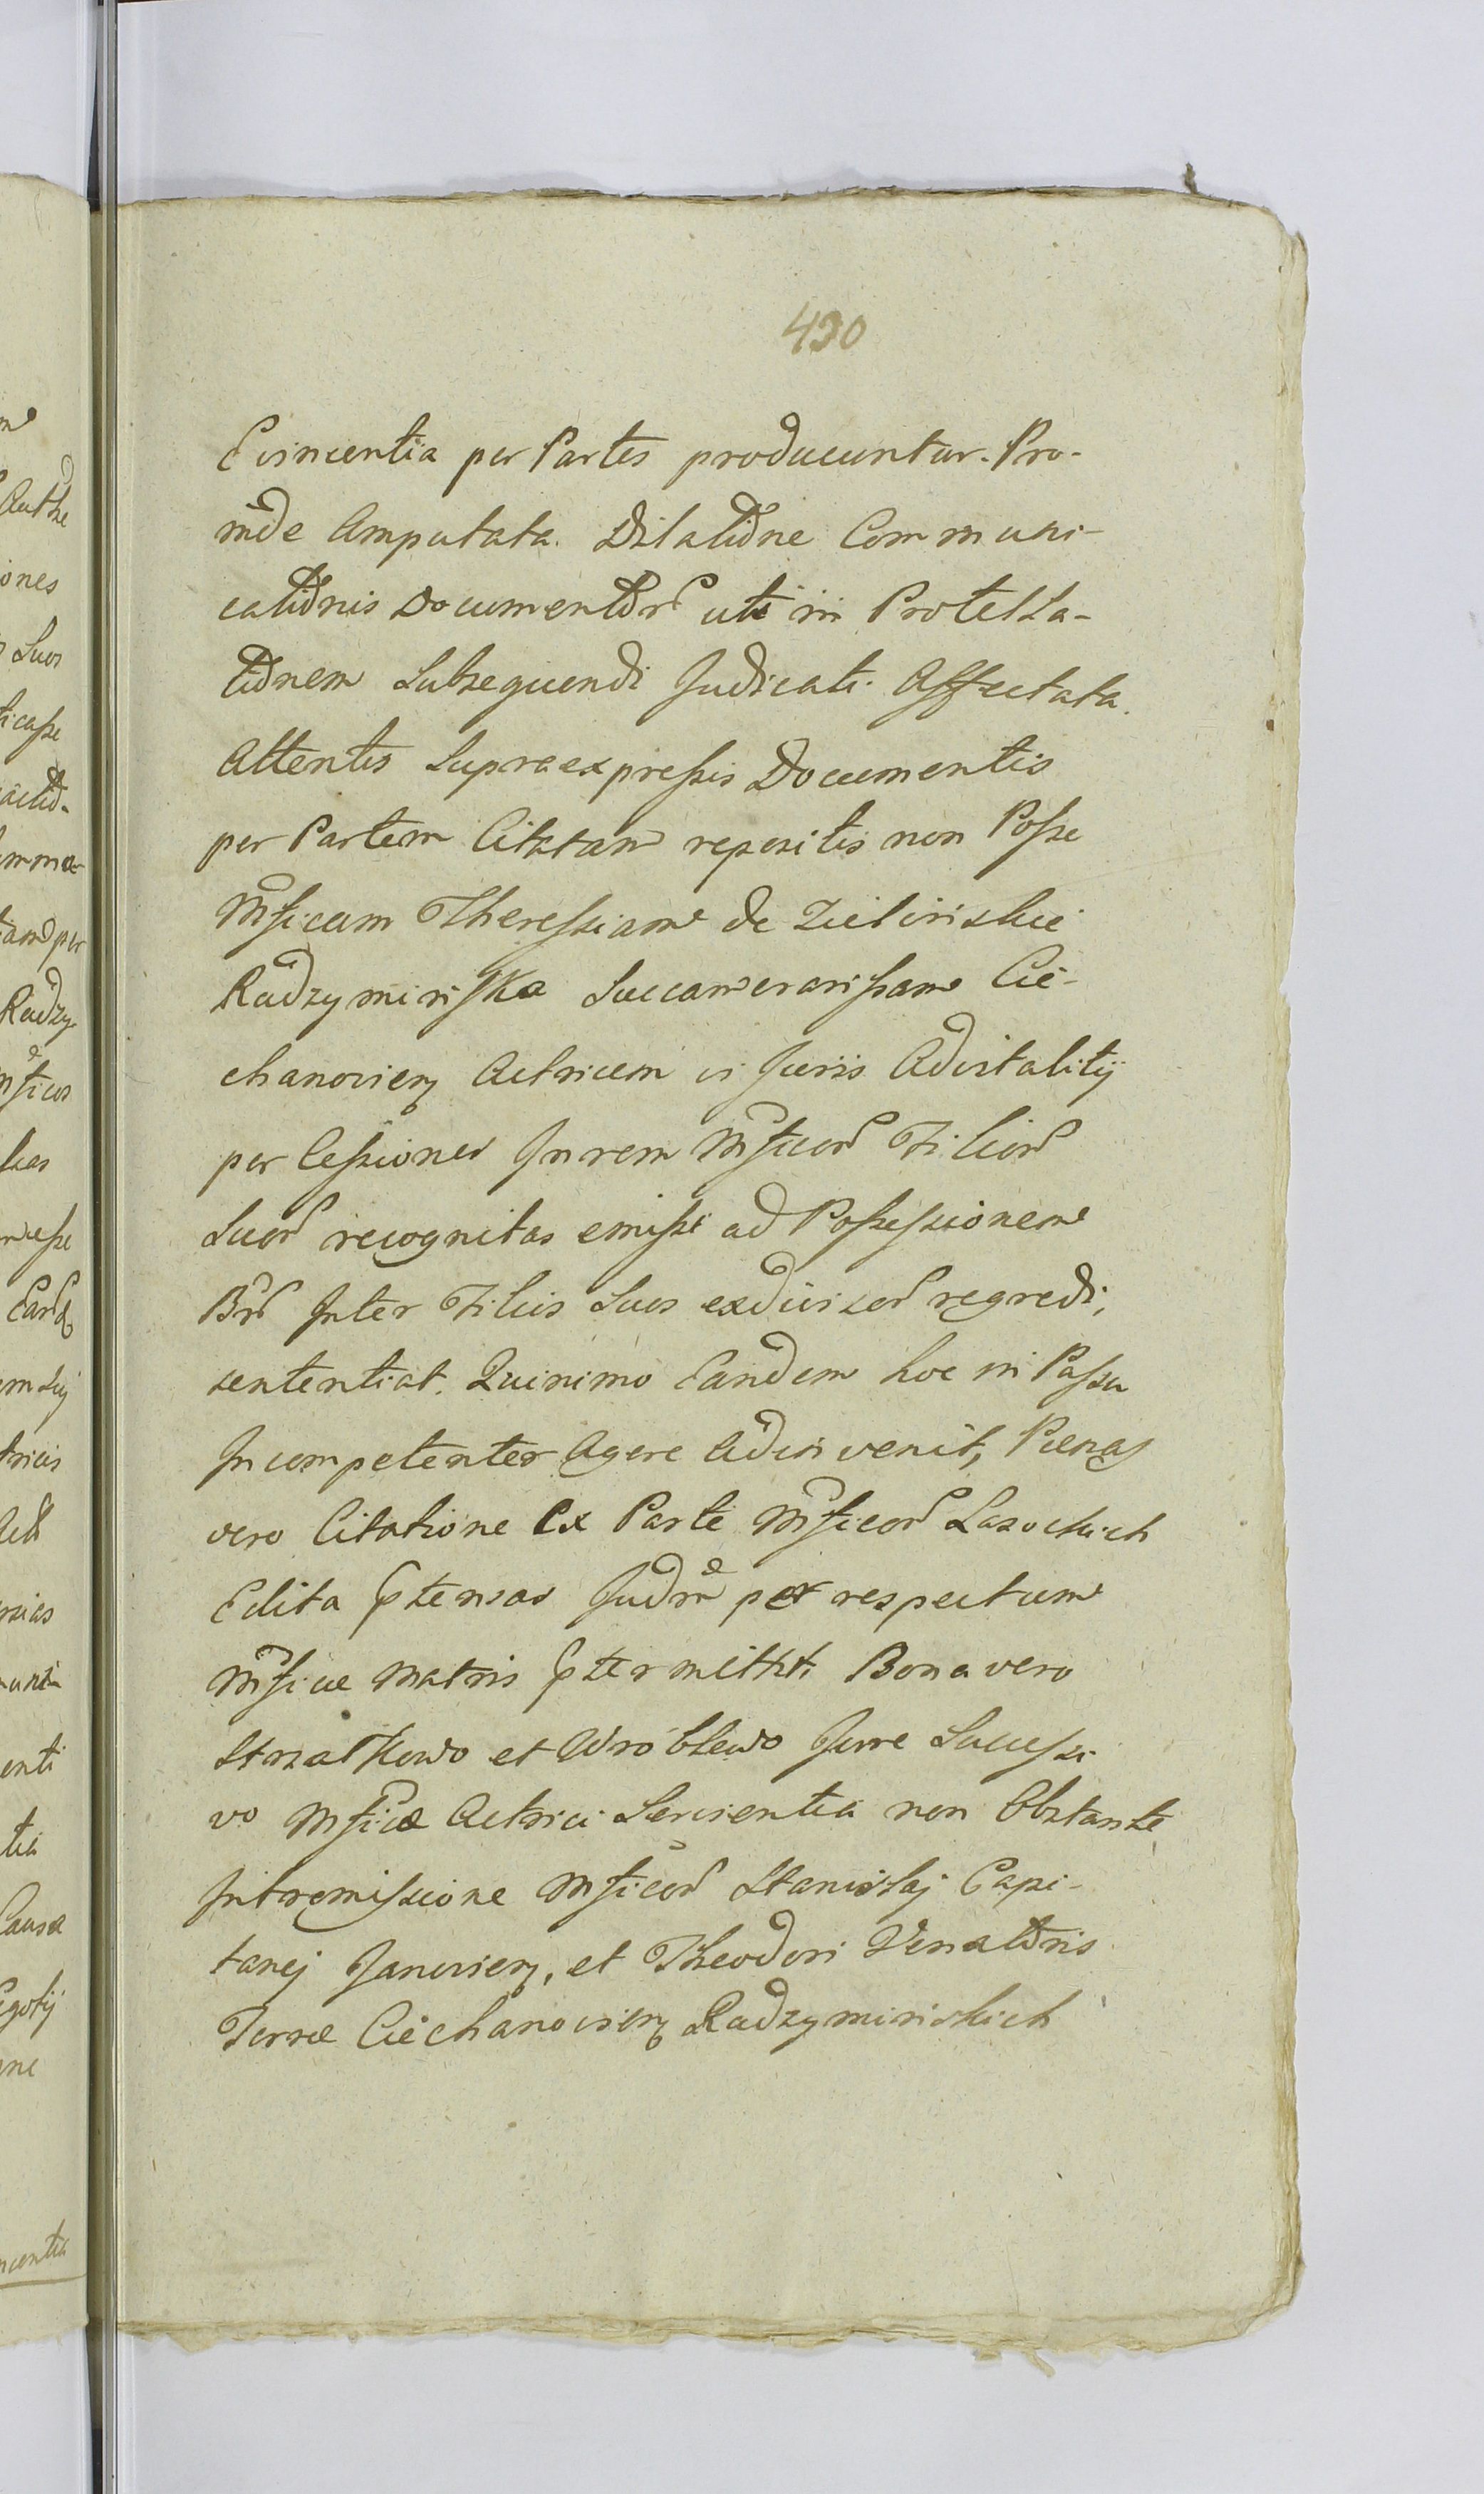 430
Evincentia per Partes producuntur. Pro-
inde Amputata Dilatione Communi-
cationis Documentor uti in Protella-
tionem Subsequendi Judicati Affectata.
Attentis Supraexpressis Documentis
per Partem Citatam repositis non Posse
Mficam Theressiam de Zielinskie
Radzyminska Succamerarissam Cie-
chanovien Actricem vi Juris Advitalitij
per Cessiones In rem Mficor Filior
Suor recognitas emissi ad Possessionem
Bnr Inter Filios Suos exdivisor regredi,
sententiat. Quinimo Eandem hoc in Passu
Incompetenter Agere Adinvenit, Pœnas
vero Citatione Ex Parte Mficor Lasockich
Edita ptensas Judm per respectum
Mficæ Matris ptermittit. Bona vero
Strzałkowo et Wróblewo Jure Successi
vo Mficæ Actrici Servientia non Obstante
Intromissione Mficor Stanislaj Capi-
tanej Janovien, et Theodori Venatoris
Terræ Ciechanovien Radzyminskich
me
Authe
iones
Suos
ticasse
am per
Radzy-
mficos
Causa
ncentia